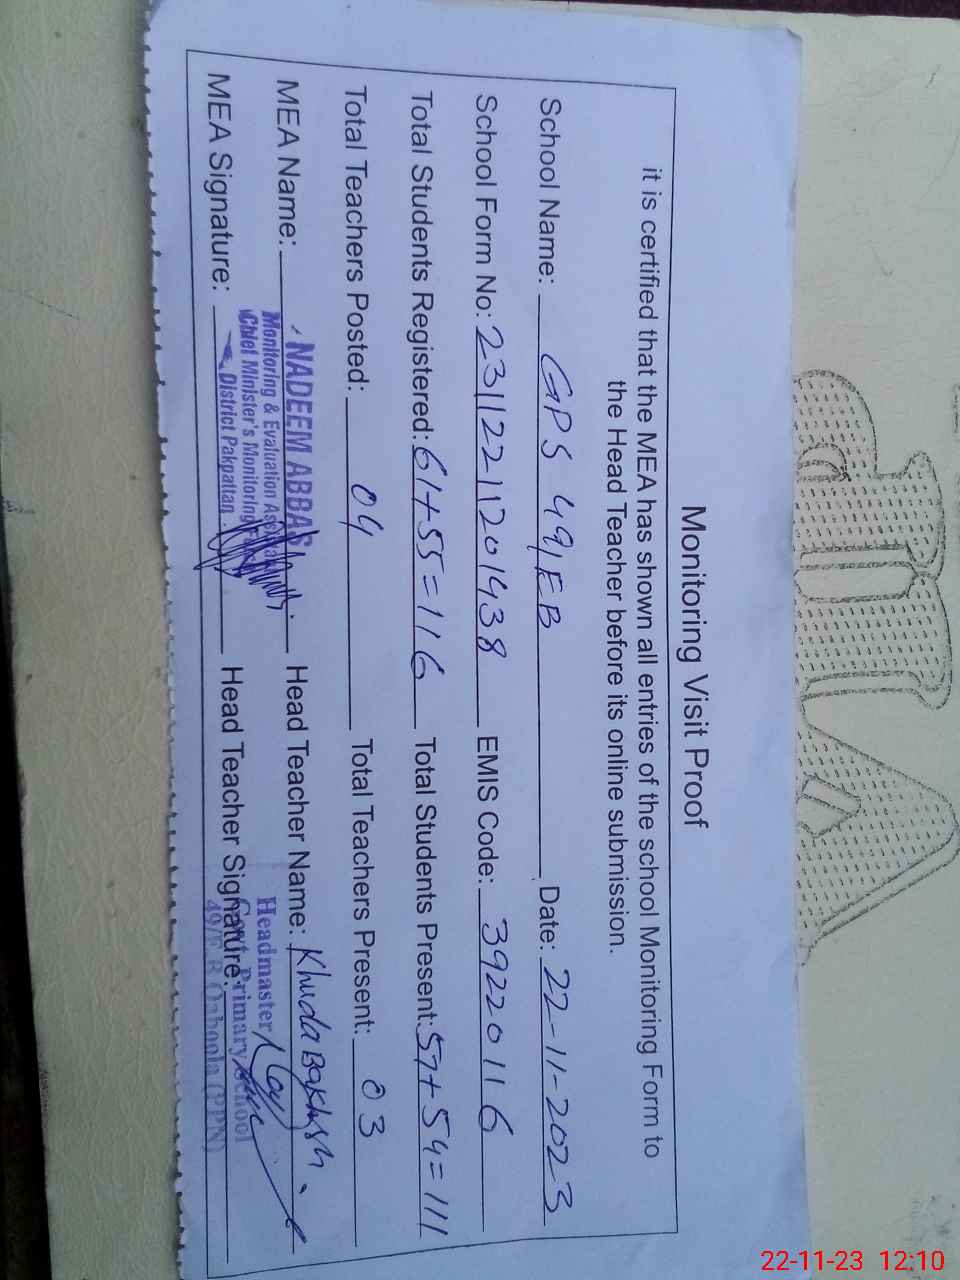 Monitoring Visit Proof
it is certified that the MEA has shown all entries of the school Monitoring Form to
the Head Teacher before its online submission.
School Name: GPS 49/EB Date: 22-11-2023
School Form No: 23112211201438 EMIS Code: 39220116
Total Students Registered: 61+55=116 Total Students Present: 57+54=111
Total Teachers Posted: 04 Total Teachers Present: 03
MEA Name: NADEEM ABBAS Head Teacher Name: Khuda Bakhsh
Monitoring & Evaluation
Chief Minister's Monitoring
District Pakpattan
Headmaster
Govt. Primary School
49/E.B Qaboola (PPN)
MEA Signature: Head Teacher Signature:
22-11-23 12:10